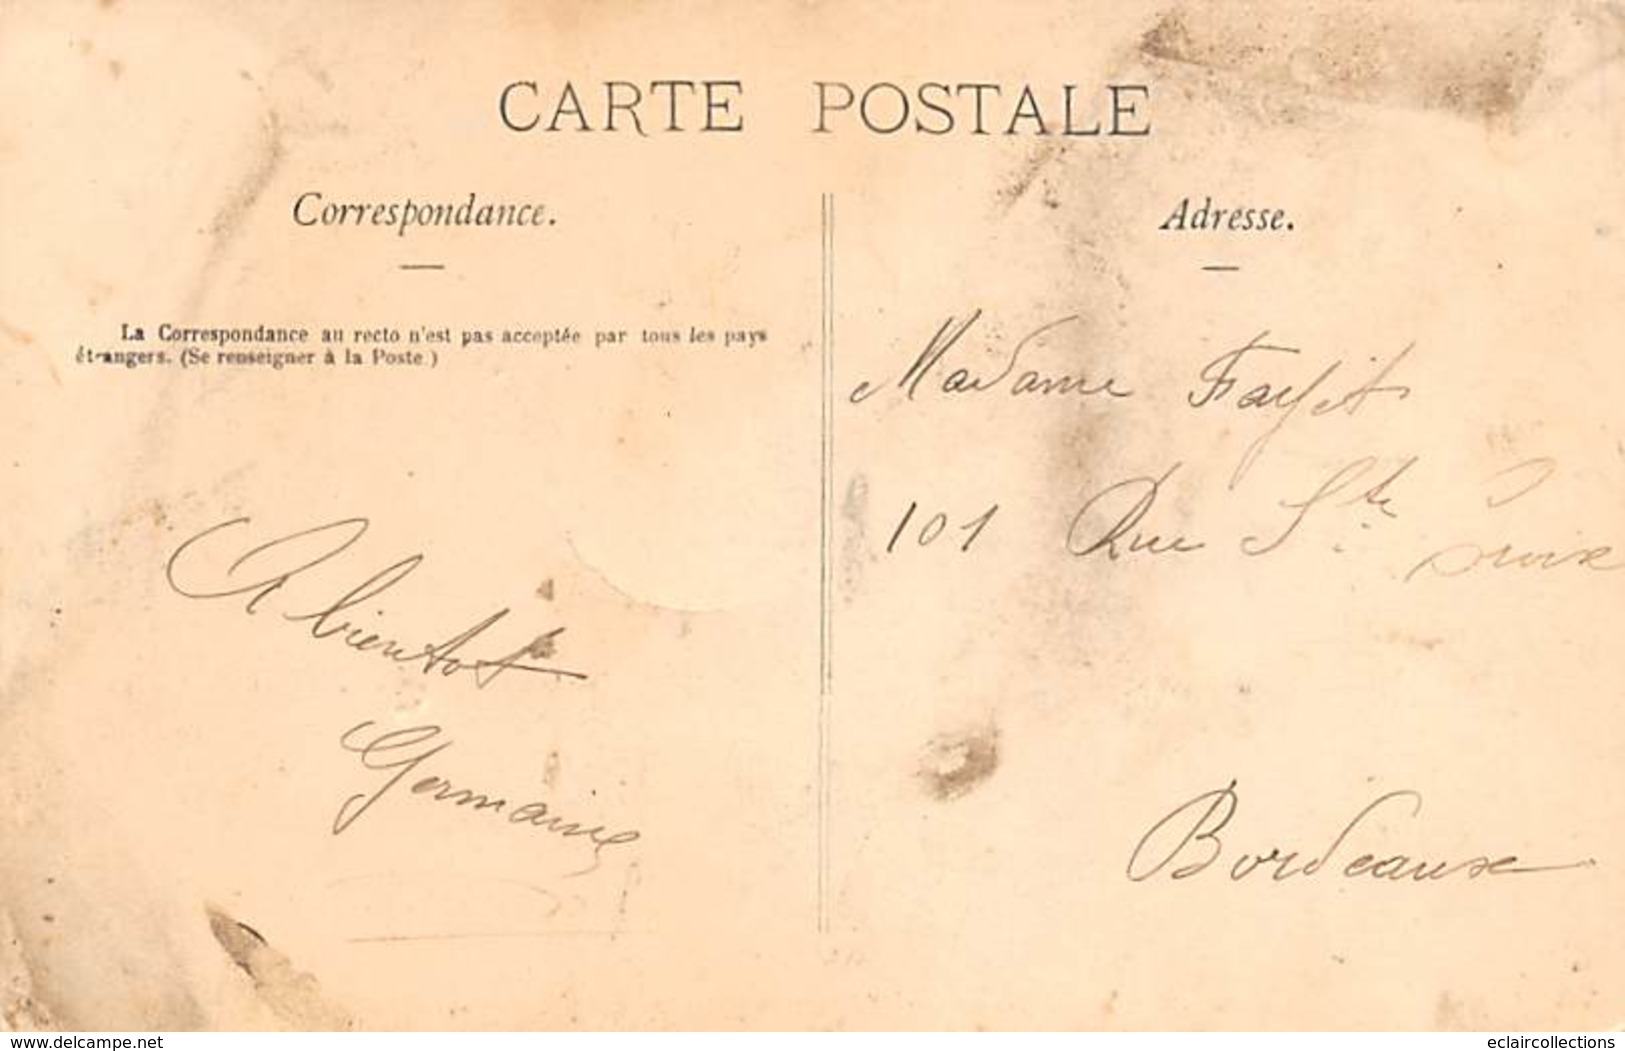 CARTE POSTALE
Correspondance.
La Correspondance au recto n'est pas acceptée par tous les pays
étrangers. (Se renseigner à la Poste)
A bientot
Germaine
Adresse.
Madame
101 Rue Ste Croix
Bordeaux
www.delcampe.net
eclaircollections